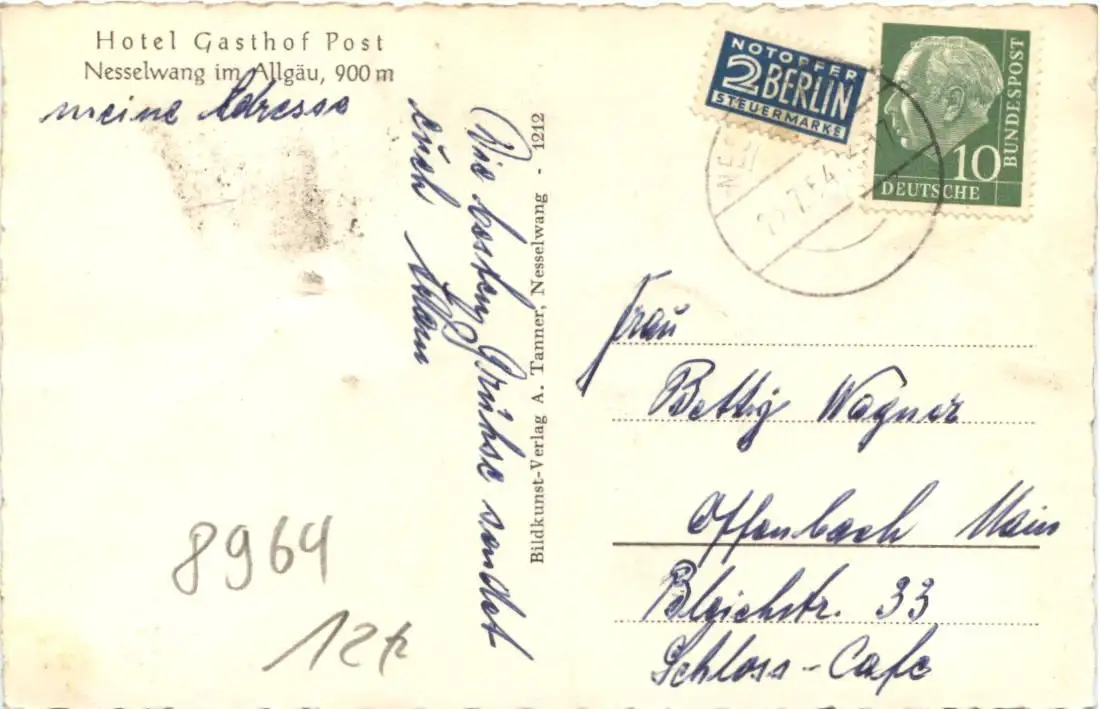 Hotel Gasthof Post
Nesselwang im Allgäu, 900 m
meine Adresse
Die besten Grühse sendet
euch
Bildkunst-Verlag A. Tanner, Nesselwang - 1212
NOTOPFER
2 BERLIN
STEUERMARKE
BUNDESPOST
10
DEUTSCHE
NES
7.54
Frau
Betty Wagner
Offenbach Main
Bleichstr. 33
Schloss-Cafe
8964
12